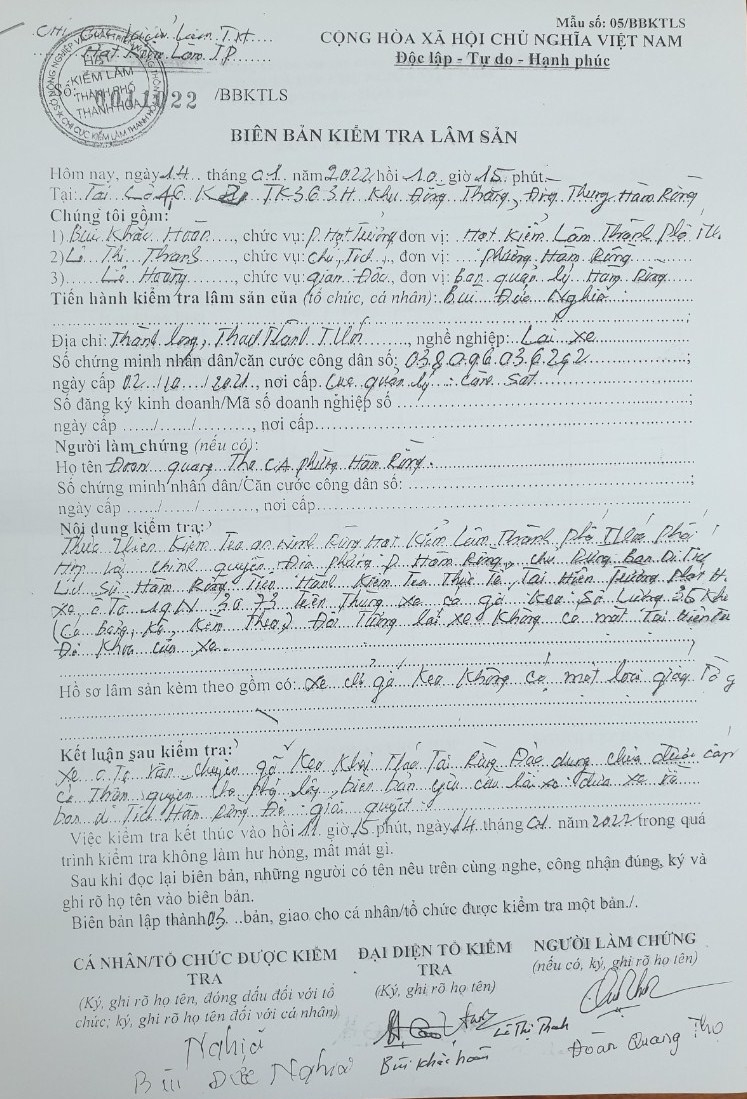 Mẫu số: 05/BBKTLS
Chi Cục Kiểm Lâm T.H
CỘNG HÒA XÃ HỘI CHỦ NGHĨA VIỆT NAM
Hạt Kiểm Lâm T.P
Độc lập - Tự do - Hạnh phúc
KIỂM LÂM
THÀNH PHỐ
THANH HÓA
Số: 0011022 /BBKTLS
BIÊN BẢN KIỂM TRA LÂM SẢN
Hôm nay, ngày 14 tháng 01 năm 2022 hồi 10 giờ 15 phút
Tại: Tại Lô 4C TK363H Khu Đông Thông, Hàm Rồng
Chúng tôi gồm:
1) Bùi Khắc Hoàn, chức vụ: P. Hạt Trưởng đơn vị: Hạt Kiểm Lâm Thành Phố
2) Lê Thị Thanh, chức vụ: Chủ Tịch, đơn vị: phường Hàm Rồng
3) Lê Hoàng, chức vụ: Giám Đốc, đơn vị: Ban quản lý Hàm Rồng
Tiến hành kiểm tra lâm sản của (tổ chức, cá nhân): Bùi Đức Nghĩa
Địa chỉ: Thành Long, Thạch Thành T.Hóa, nghề nghiệp: Lái xe
Số chứng minh nhân dân/căn cước công dân số: 038096036262;
ngày cấp 02/10/2021, nơi cấp. Cục quản lý Cảnh Sát
Số đăng ký kinh doanh/Mã số doanh nghiệp số ;
ngày cấp ....../....../........, nơi cấp
Người làm chứng (nếu có):
Họ tên Đoàn Quang Thọ C.A phường Hàm Rồng.
Số chứng minh nhân dân/Căn cước công dân số: ;
ngày cấp ....../....../........, nơi cấp
Nội dung kiểm tra:
Thực Hiện Kiểm Tra an ninh Rừng Hạt Kiểm Lâm Thành phố T.Hóa Phối
Hợp với chính quyền Địa phương P. Hàm Rồng, chủ Rừng Ban Di Tích
Lịch Sử Hàm Rồng Tiến Hành Kiểm Tra Thực Tế, Tại Hiện trường phát H.
Xe ô Tô 3073 Trên Thùng xe có gỗ Keo Số Lượng 3,5 Khối
(Có Bảng Kê Kèm Theo) Đối Tượng lái xe Không có mặt Tại Hiện
Đã Khóa cửa xe
Hồ sơ lâm sản kèm theo gồm có: xe chở gỗ Keo Không có một loại giấy Tờ g
Kết luận sau kiểm tra:
Xe ô Tô Vận chuyển gỗ Keo Khai Thác Tại Rừng Đặc dụng chưa được cấp
có Thẩm quyền cho phép lập biên bản yêu cầu lái xe đưa xe về
ban di Tích Hàm Rồng Để giải quyết
Việc kiểm tra kết thúc vào hồi 11 giờ 15 phút, ngày 14 tháng 01 năm 2022 trong quá
trình kiểm tra không làm hư hỏng, mất mát gì.
Sau khi đọc lại biên bản, những người có tên nêu trên cùng nghe, công nhận đúng, ký và
ghi rõ họ tên vào biên bản.
Biên bản lập thành 03 bản, giao cho cá nhân/tổ chức được kiểm tra một bản./.
CÁ NHÂN/TỔ CHỨC ĐƯỢC KIỂM TRA
(Ký, ghi rõ họ tên, đóng dấu đối với tổ
chức; ký, ghi rõ họ tên đối với cá nhân)
Nghĩa
Bùi Đức Nghĩa
ĐẠI DIỆN TỔ KIỂM TRA
(Ký, ghi rõ họ tên)
Lê Thị Thanh
Bùi Khắc Hoàn
NGƯỜI LÀM CHỨNG
(nếu có, ký, ghi rõ họ tên)
Đoàn Quang Thọ